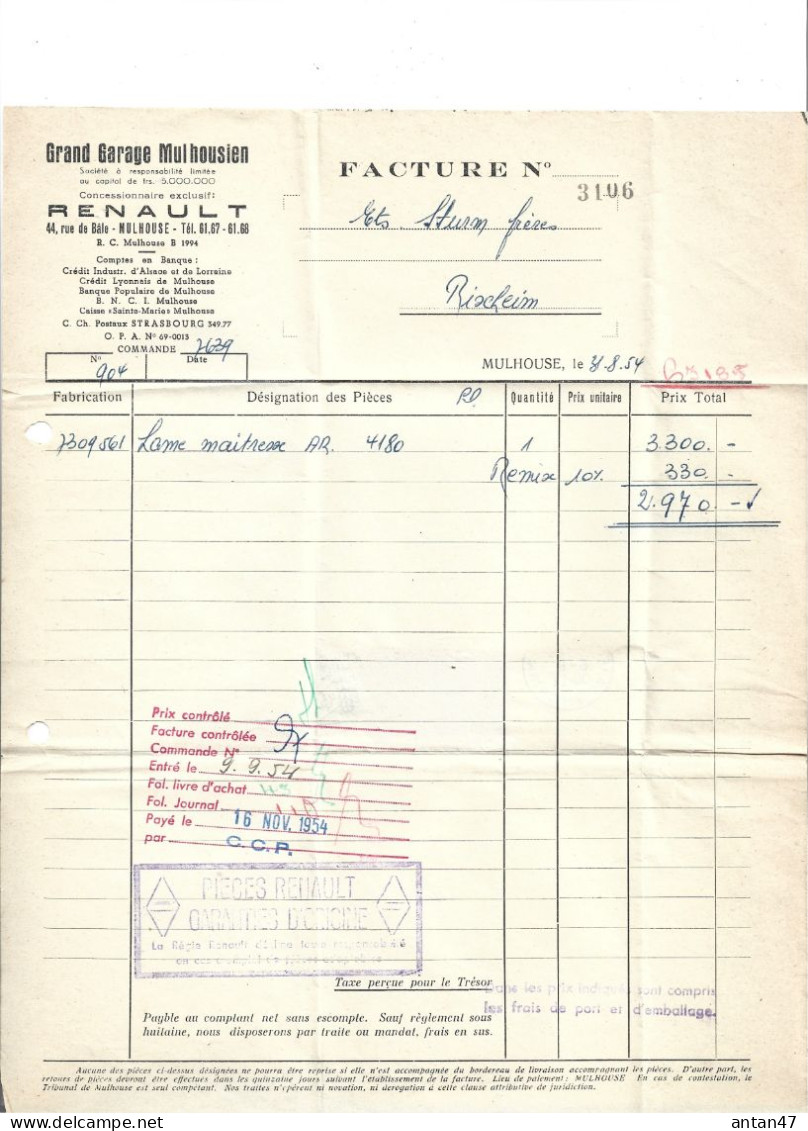 Grand Garage Mulhousien
Société à responsabilité limitée
au capital de frs. 5.000.000
Concessionnaire exclusif:
RENAULT
44, rue de Bâle - MULHOUSE - Tél. 61.67 - 61.68
R. C. Mulhouse B 1994
Comptes en Banque :
Crédit Industr. d'Alsace et de Lorraine
Crédit Lyonnais de Mulhouse
Banque Populaire de Mulhouse
B. N. C. I. Mulhouse
Caisse «Sainte-Marie» Mulhouse
C. Ch. Postaux STRASBOURG 349.77
O. P. A. Nº 69-0013
COMMANDE 7639
Nº Date
904
FACTURE Nº
3106
Ets. Sturm frères
Rixheim
MULHOUSE, le 31.8.54
Fabrication Désignation des Pièces Quantité Prix unitaire Prix Total
7309561 Lame maitresse AR. 4180 1 3.300.-
Remise 10% 330.-
2.970.-
Prix contrôlé
Facture contrôlée
Commande Nº
Entré le 9.9.54
Fol. livre d'achat
Fol. Journal
Payé le 16 NOV. 1954
par C.C.P.
PIÈCES RENAULT
GARANTIES D'ORIGINE
La Régie Renault décline toute responsabilité
en cas d'emploi de pièces
Taxe perçue pour le Trésor
Dans les prix indiqués sont compris
les frais de port et d'emballage.
Payable au comptant net sans escompte. Sauf règlement sous
huitaine, nous disposerons par traite ou mandat, frais en sus.
Aucune des pièces ci-dessus désignées ne pourra être reprise si elle n'est accompagnée du bordereau de livraison accompagnant les pièces. D'autre part, les
retours de pièces devront être effectués dans les quinzaine jours suivant l'établissement de la facture. Lieu de paiement: MULHOUSE En cas de contestation, le
Tribunal de Mulhouse est seul compétant. Nos traites n'opèrent ni novation, ni dérogation à cette clause attributive de juridiction.
antan47